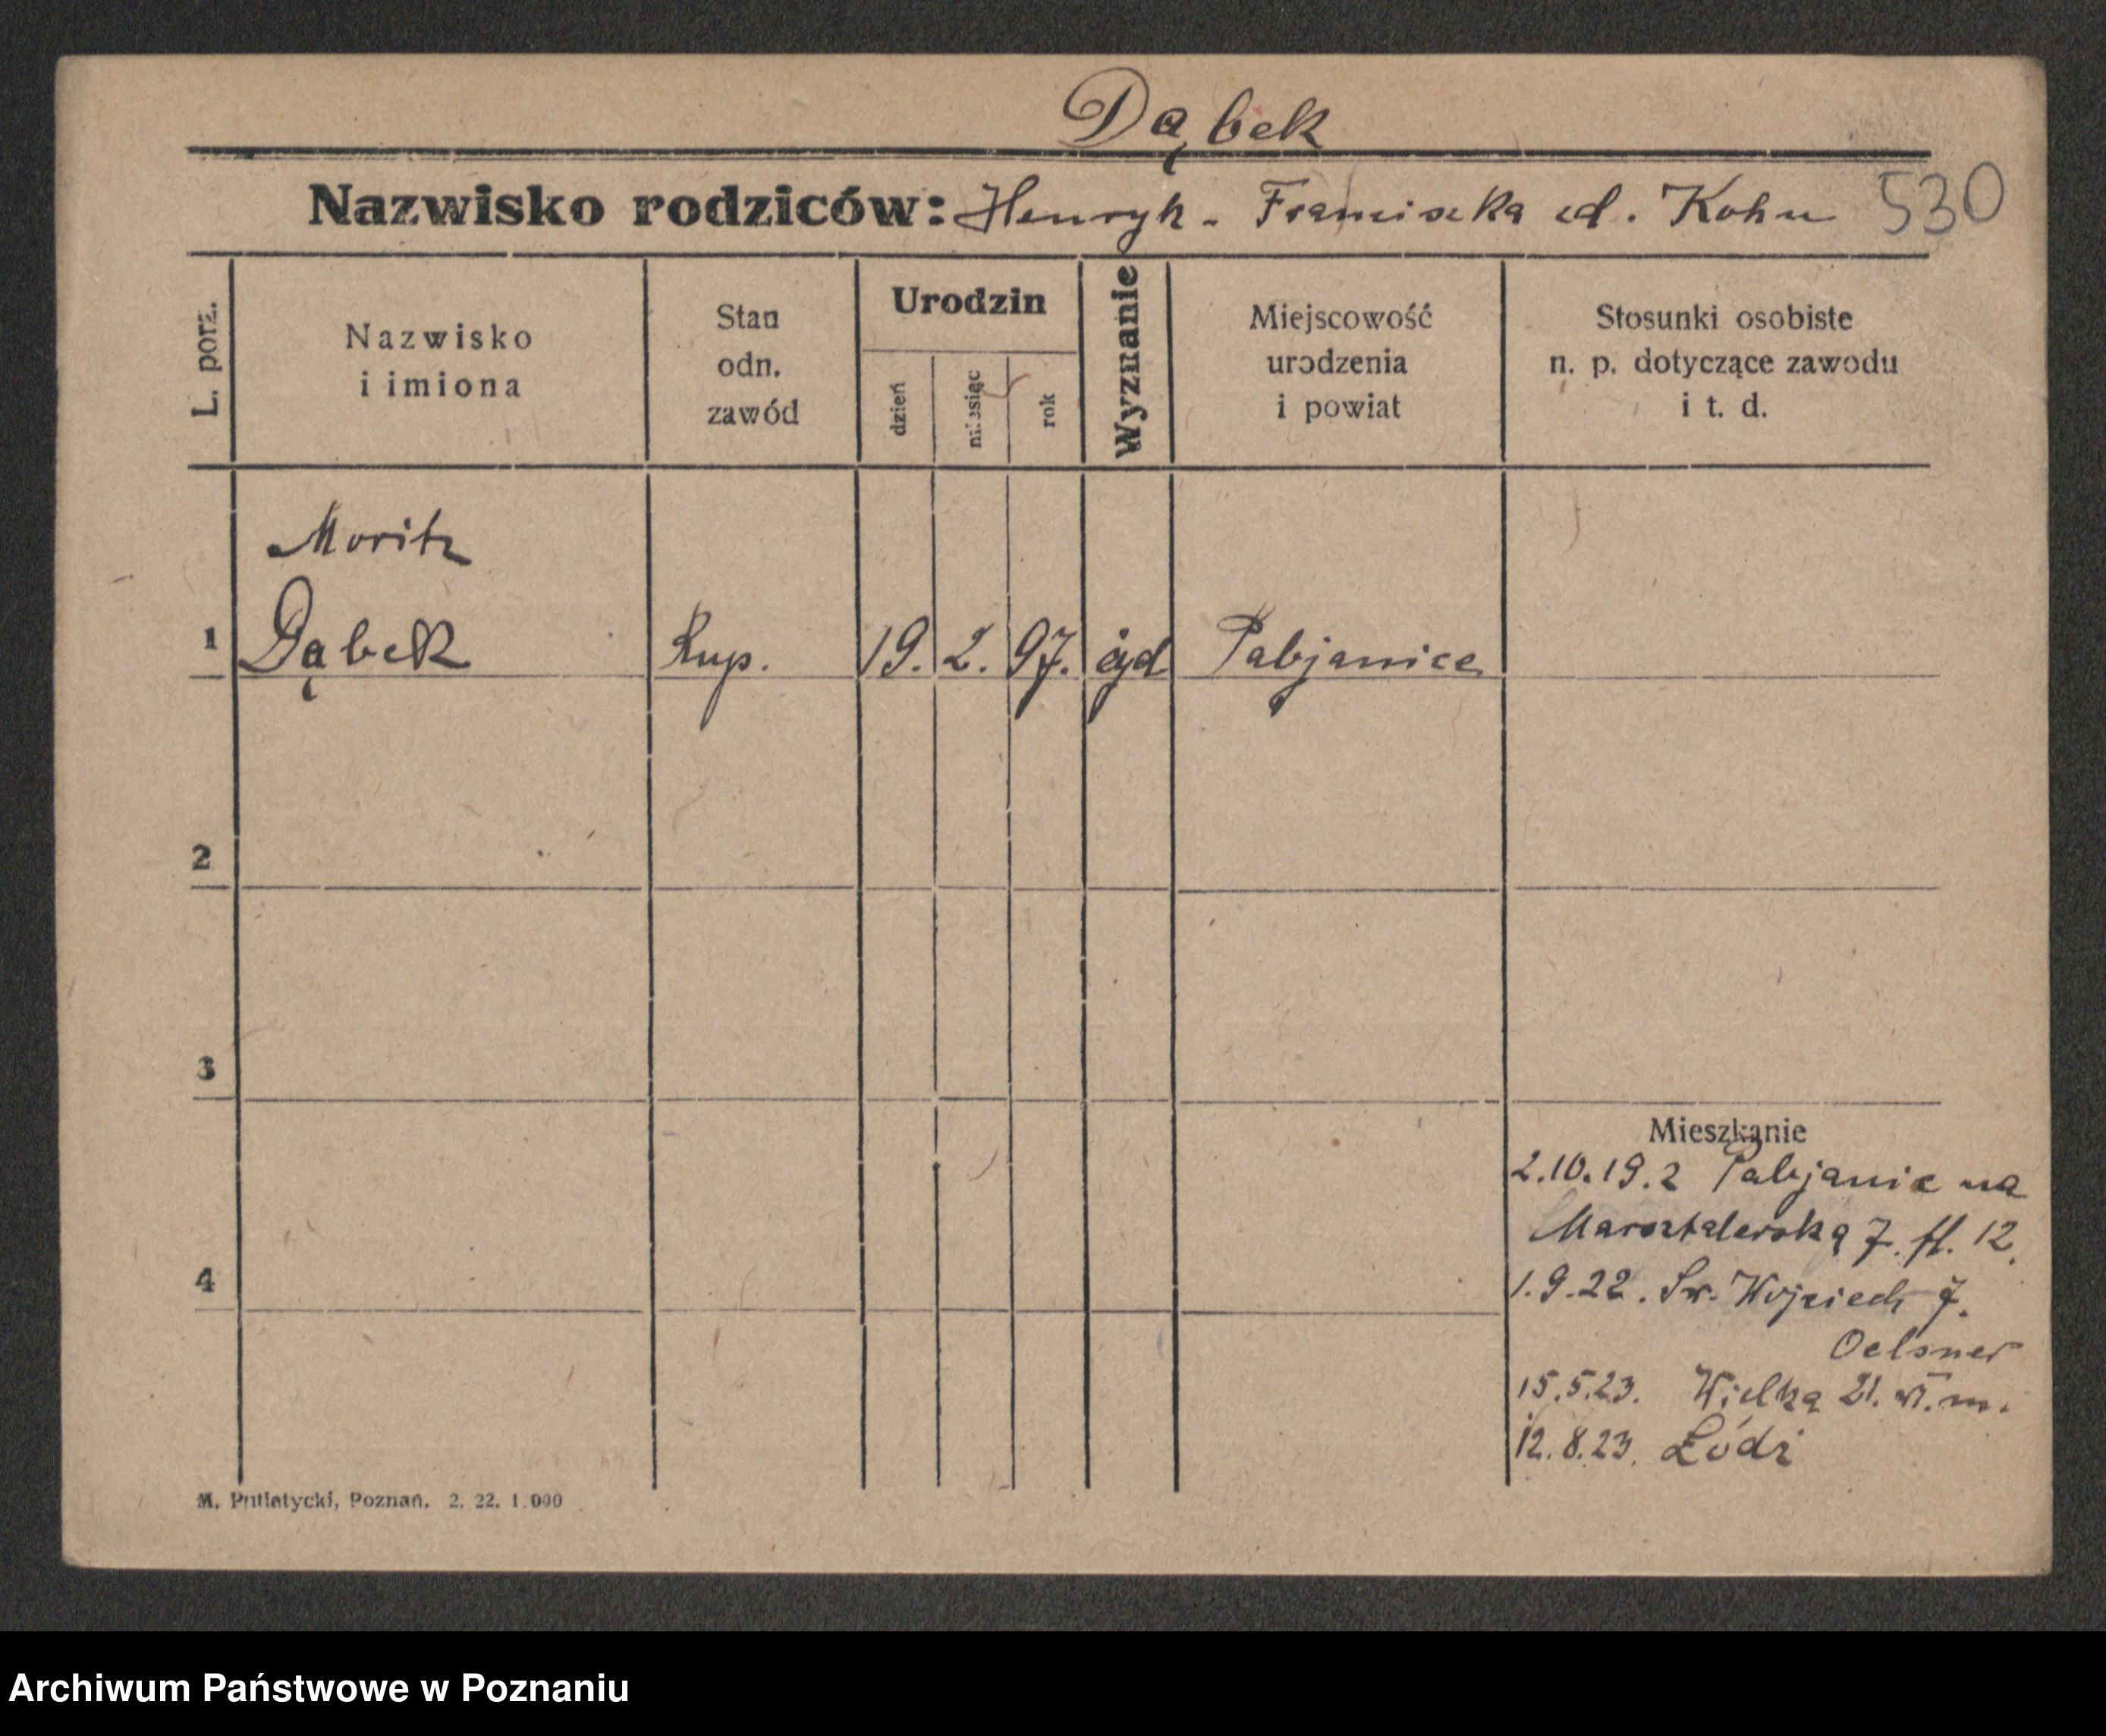 Dąbek
Nazwisko rodziców: Henryk - Franciszka zd. Kohn 530
L. porz.
Nazwisko
i imiona
Stan
odn.
zawód
Urodzin
dzień
miesiąc
rok
Wyznanie
Miejscowość
urodzenia
i powiat
Stosunki osobiste
n. p. dotyczące zawodu
i t. d.
Moritz
1 Dąbek Kup. 19. 2. 97. żyd Pabjanice
2
3
4
Mieszkanie
2.10.19.2 Pabjanic na
Marsztalerską 7. fl. 12.
1.9.22. Św. Wojciech 7.
Oelsner
15.5.23. Wielka 21. w. m.
12.8.23. Łódź
M. Putiatycki, Poznań. 2. 22. 1.000
Archiwum Państwowe w Poznaniu